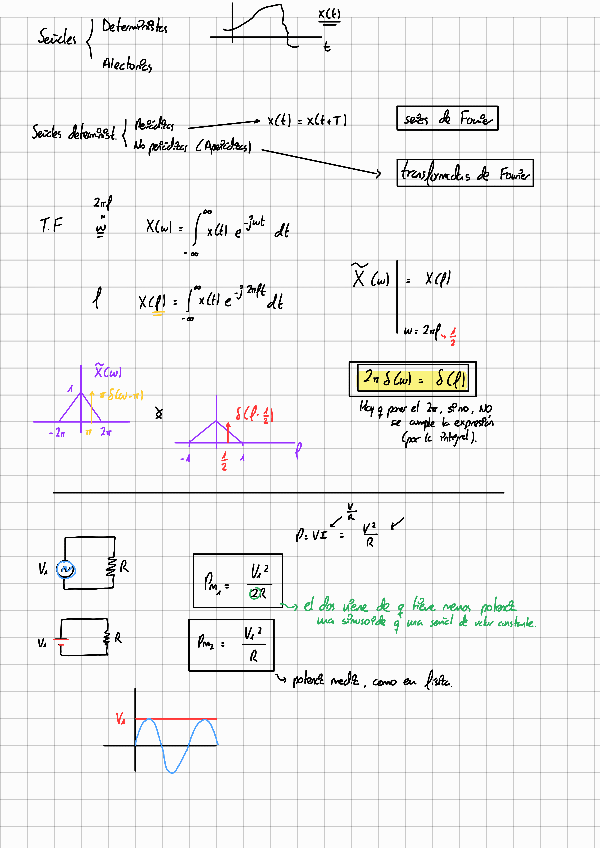 Señales { Deterministas
Aleatorias
x(t)
t
Señales determinist. { Periódicas
No periódicas (Aperiódicas)
x(t) = x(t+T)
series de Fourier
transformadas de Fourier
2πf
"
T.F w X(w) = ∫_{-∞}^{∞} x(t) e^{-jwt} dt
f X(f) = ∫_{-∞}^{∞} x(t) e^{-j2πft} dt
X̃(w) | = X(f)
w = 2πf → 1/2
2π δ(w) = δ(f)
Hay q poner el 2π, si no, NO
se cumple la expresión
(por la integral).
X̃(w)
1
π δ(w-π)
-2π π 2π
δ(f-1/2)
-1 1/2 1 f
P = VI = V²/R
V/R
V₁ R
Pm₁ = V₁²/2R
el dos viene de q tiene menos potencia
una sinusoide q una señal de valor constante.
V₁ R
Pm₂ = V₁²/R
potencia media, como en física.
V₁